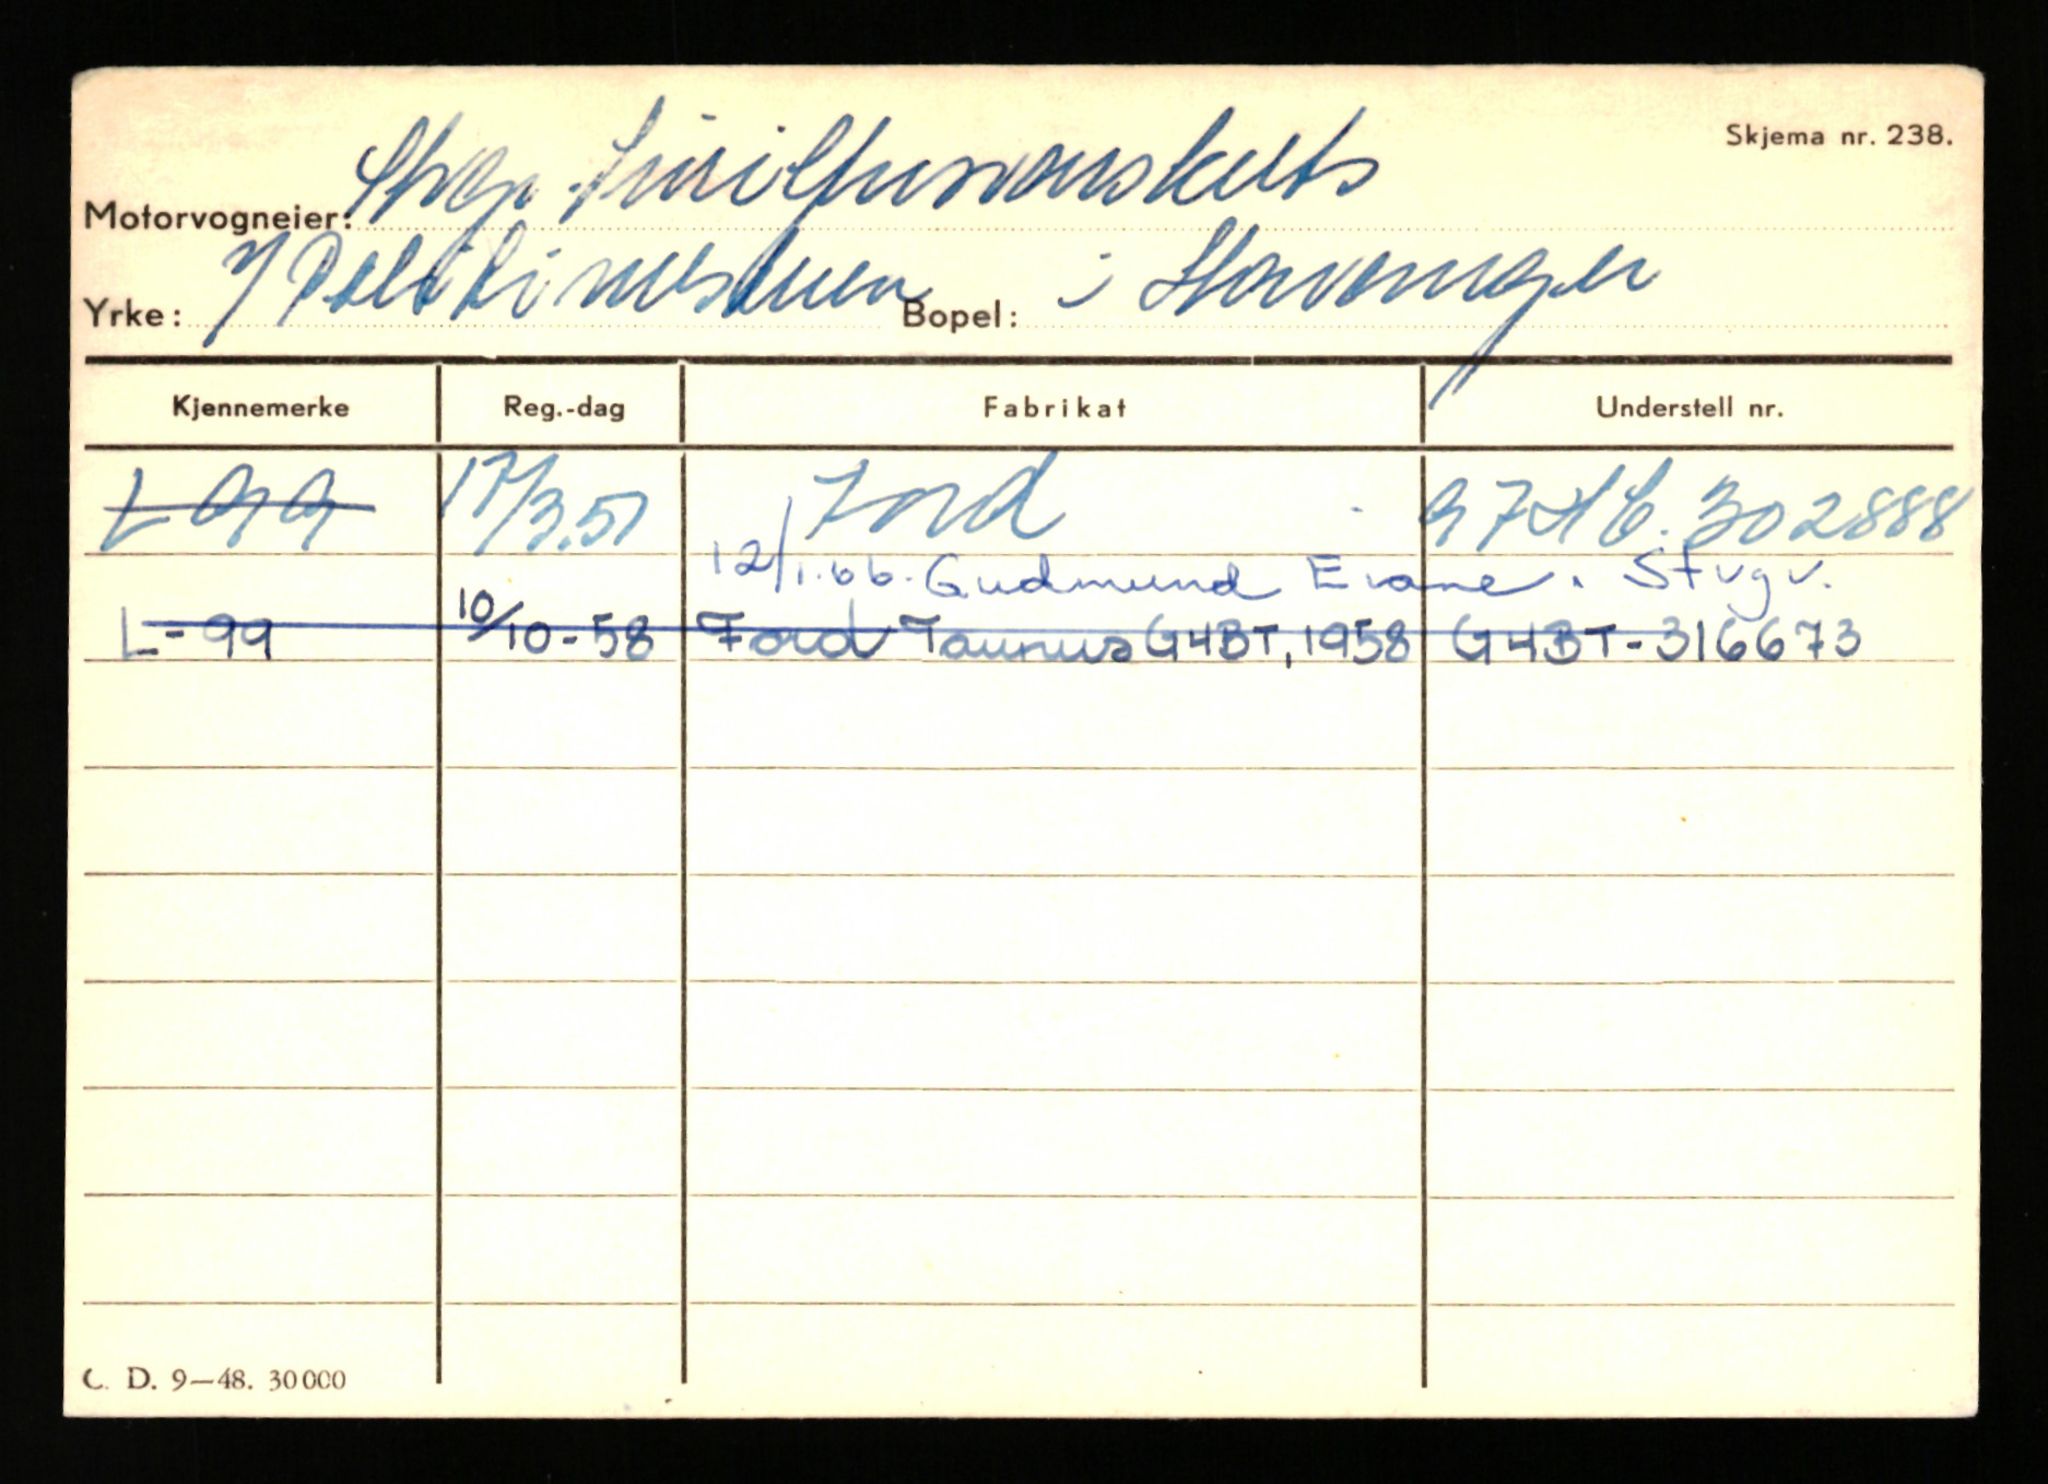 Skjema nr. 238.
Motorvogneier: Stvgr. Sivilforsvarskrets
Yrke: v/Politimesteren Bopel: i Stavanger
Kjennemerke Reg.-dag Fabrikat Understell nr.
L 99 17/3.51 Ford 97HC.302888
12/1.66. Gudmund Evane. Stvgv.
L-99 10/10-58 Ford Taunus G4BT, 1958 G4BT-316673
C. D. 9—48. 30000